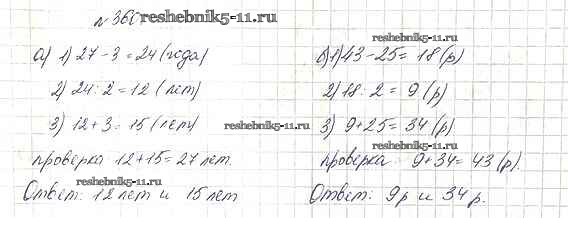 № 360 reshebnik5-11.ru
а) 1) 27 - 3 = 24 (года)
2) 24 : 2 = 12 (лет)
3) 12 + 3 = 15 (лет)
проверка 12 + 15 = 27 лет.
reshebnik5-11.ru
Ответ: 12 лет и 15 лет
reshebnik5-11.ru
reshebnik5-11.ru
б) 1) 43 - 25 = 18 (р)
2) 18 : 2 = 9 (р)
3) 9 + 25 = 34 (р)
reshebnik5-11.ru
проверка: 9 + 34 = 43 (р).
Ответ: 9 р и 34 р.